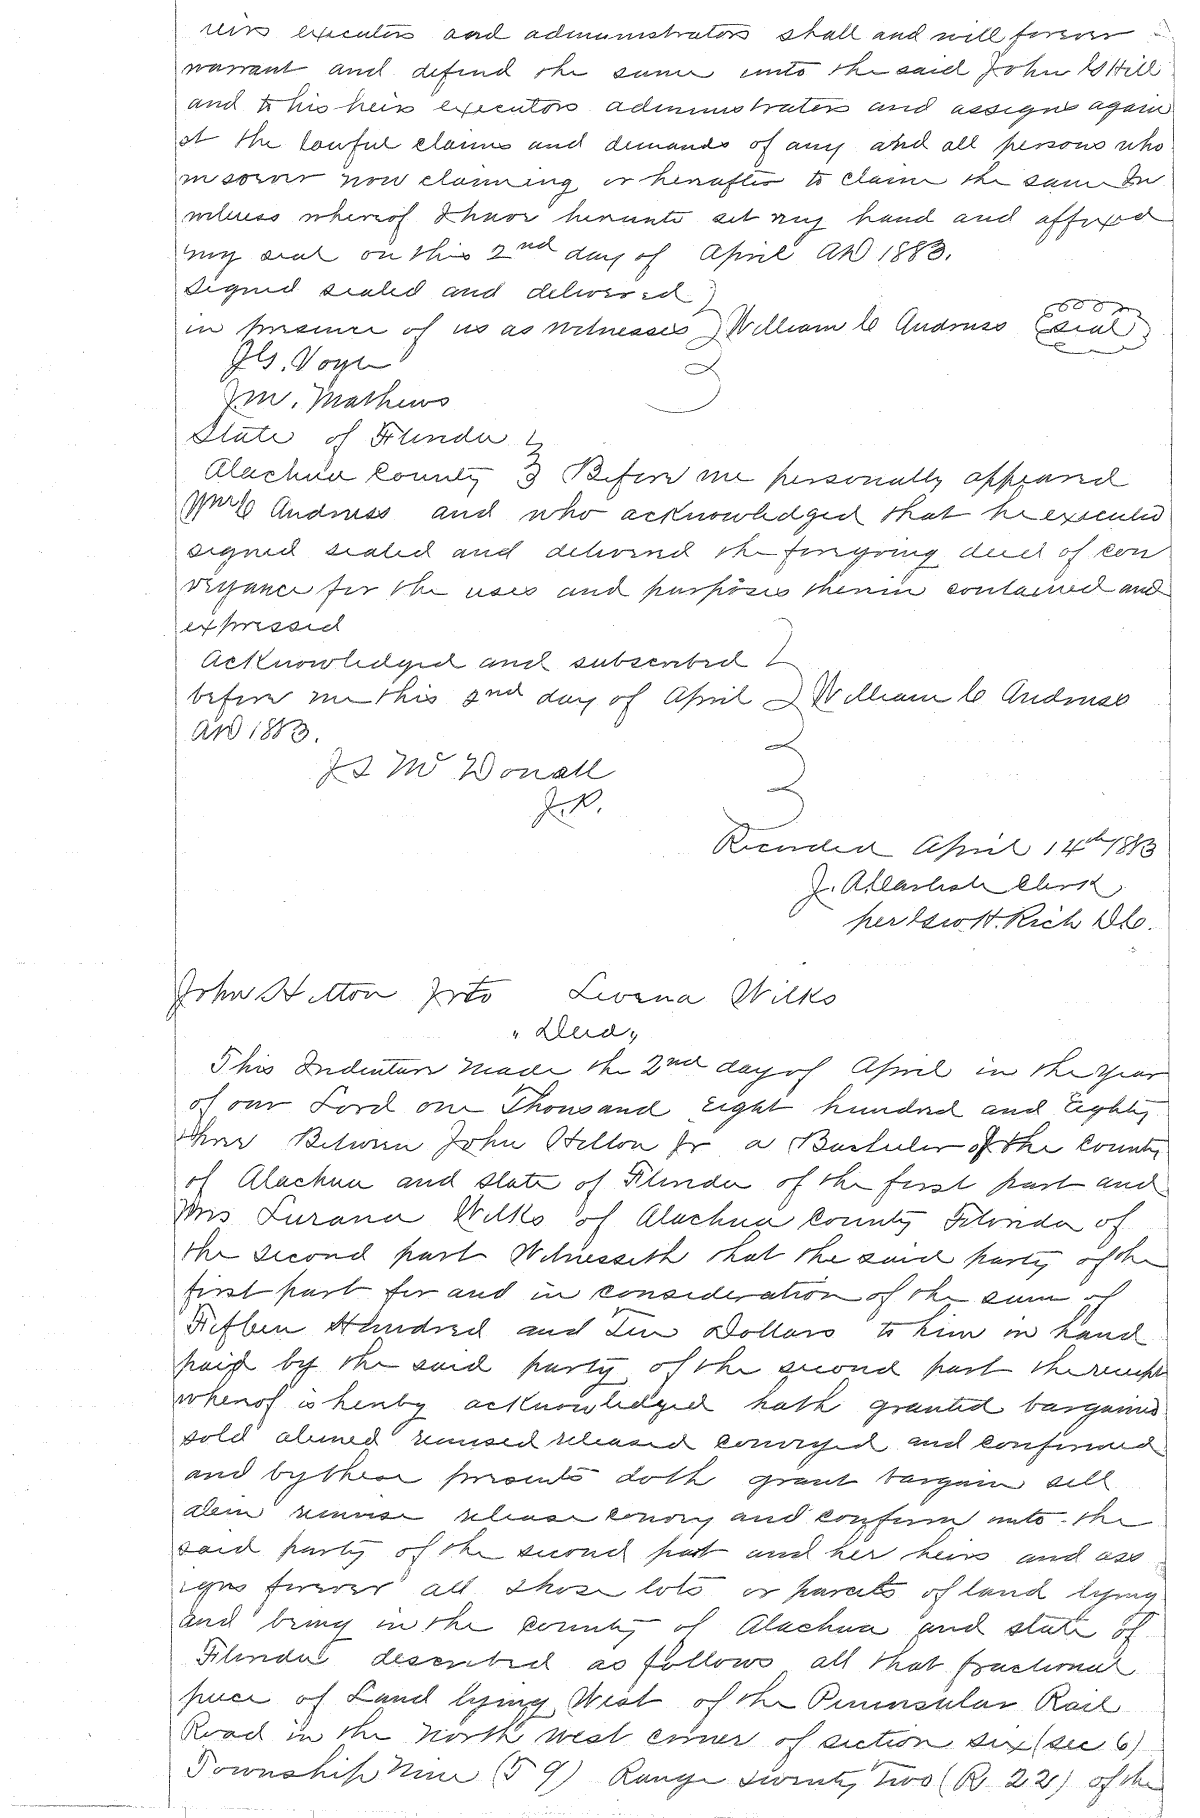 heirs executors and administrators shall and will forever
warrant and defend the same unto the said John W Hill
and to his heirs executors administrators and assigns again
st the lawful claims and demands of any and all persons who
msoever now claiming or hereafter to claim the same In
witness whereof I have hereunto set my hand and affixed
my seal on this 2nd day of April AD 1883.
Signed sealed and delivered
in presence of us as witnesses William C Andruss (seal)
J.G. Voyle
J.M. Mathews
State of Florida
Alachua County Before me personally appeared
Wm C Andruss and who acknowledged that he executed
signed sealed and delivered the foregoing deed of con
veyance for the uses and purposes therein contained and
expressed
Acknowledged and subscribed
before me this 2nd day of April William C Andruss
AD 1883.
McDonall
J.P.
Recorded April 14th 1883
J. A. Carlisle Clerk
per H. Rich D.C.
John Hilton Jr to Levana Wilks
"Deed"
This Indenture Made the 2nd day of April in the year
of our Lord one Thousand Eight hundred and Eighty
three Between John Hilton Jr a Bacheler of the County
of Alachua and State of Florida of the first part and
Mrs Lurana Wilks of Alachua County Florida of
the second part Witnesseth that the said party of the
first part for and in consideration of the sum of
Fifteen Hundred and Ten Dollars to him in hand
paid by the said party of the second part the receipt
whereof is hereby acknowledged hath granted bargained
sold aliened remised released conveyed and confirmed
and by these presents doth grant bargain sell
alein remise release convey and confirm unto the
said party of the second part and her heirs and ass
igns forever all those lots or parcels of land lying
and being in the County of Alachua and state of
Florida described as follows all that fractional
piece of Land lying West of the Peninsular Rail
Road in the North West corner of section six (sec 6)
Township Nine (T 9) Range twenty two (R 22) of the